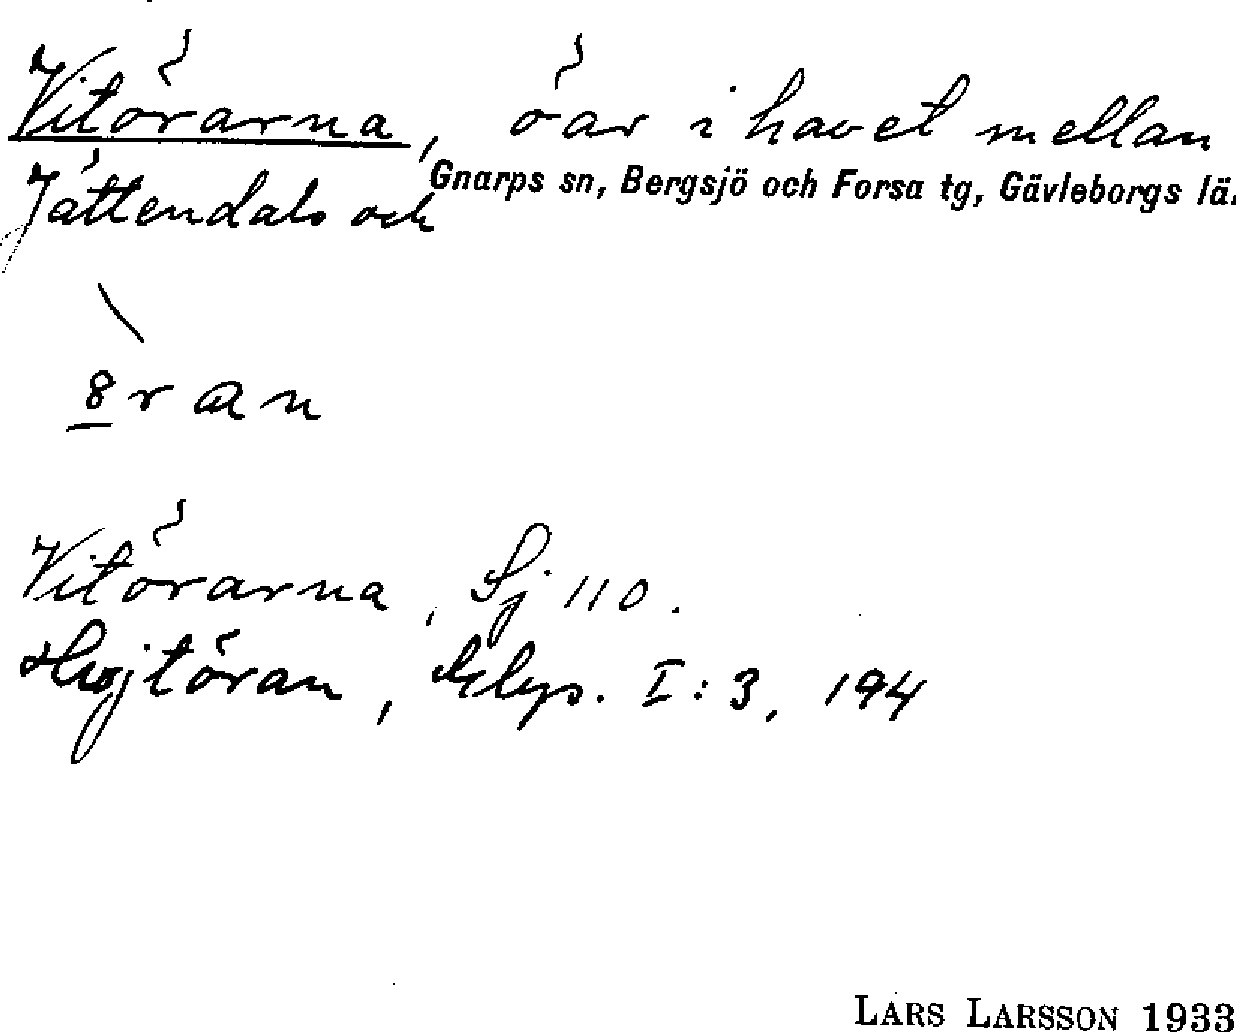 Vitörarna, öar i havet mellan
Jättendals och Gnarps sn, Bergsjö och Forsa tg, Gävleborgs lä.
8ran
Vitörarna, Sj 110.
töran, I:3, 194
LARS LARSSON 1933